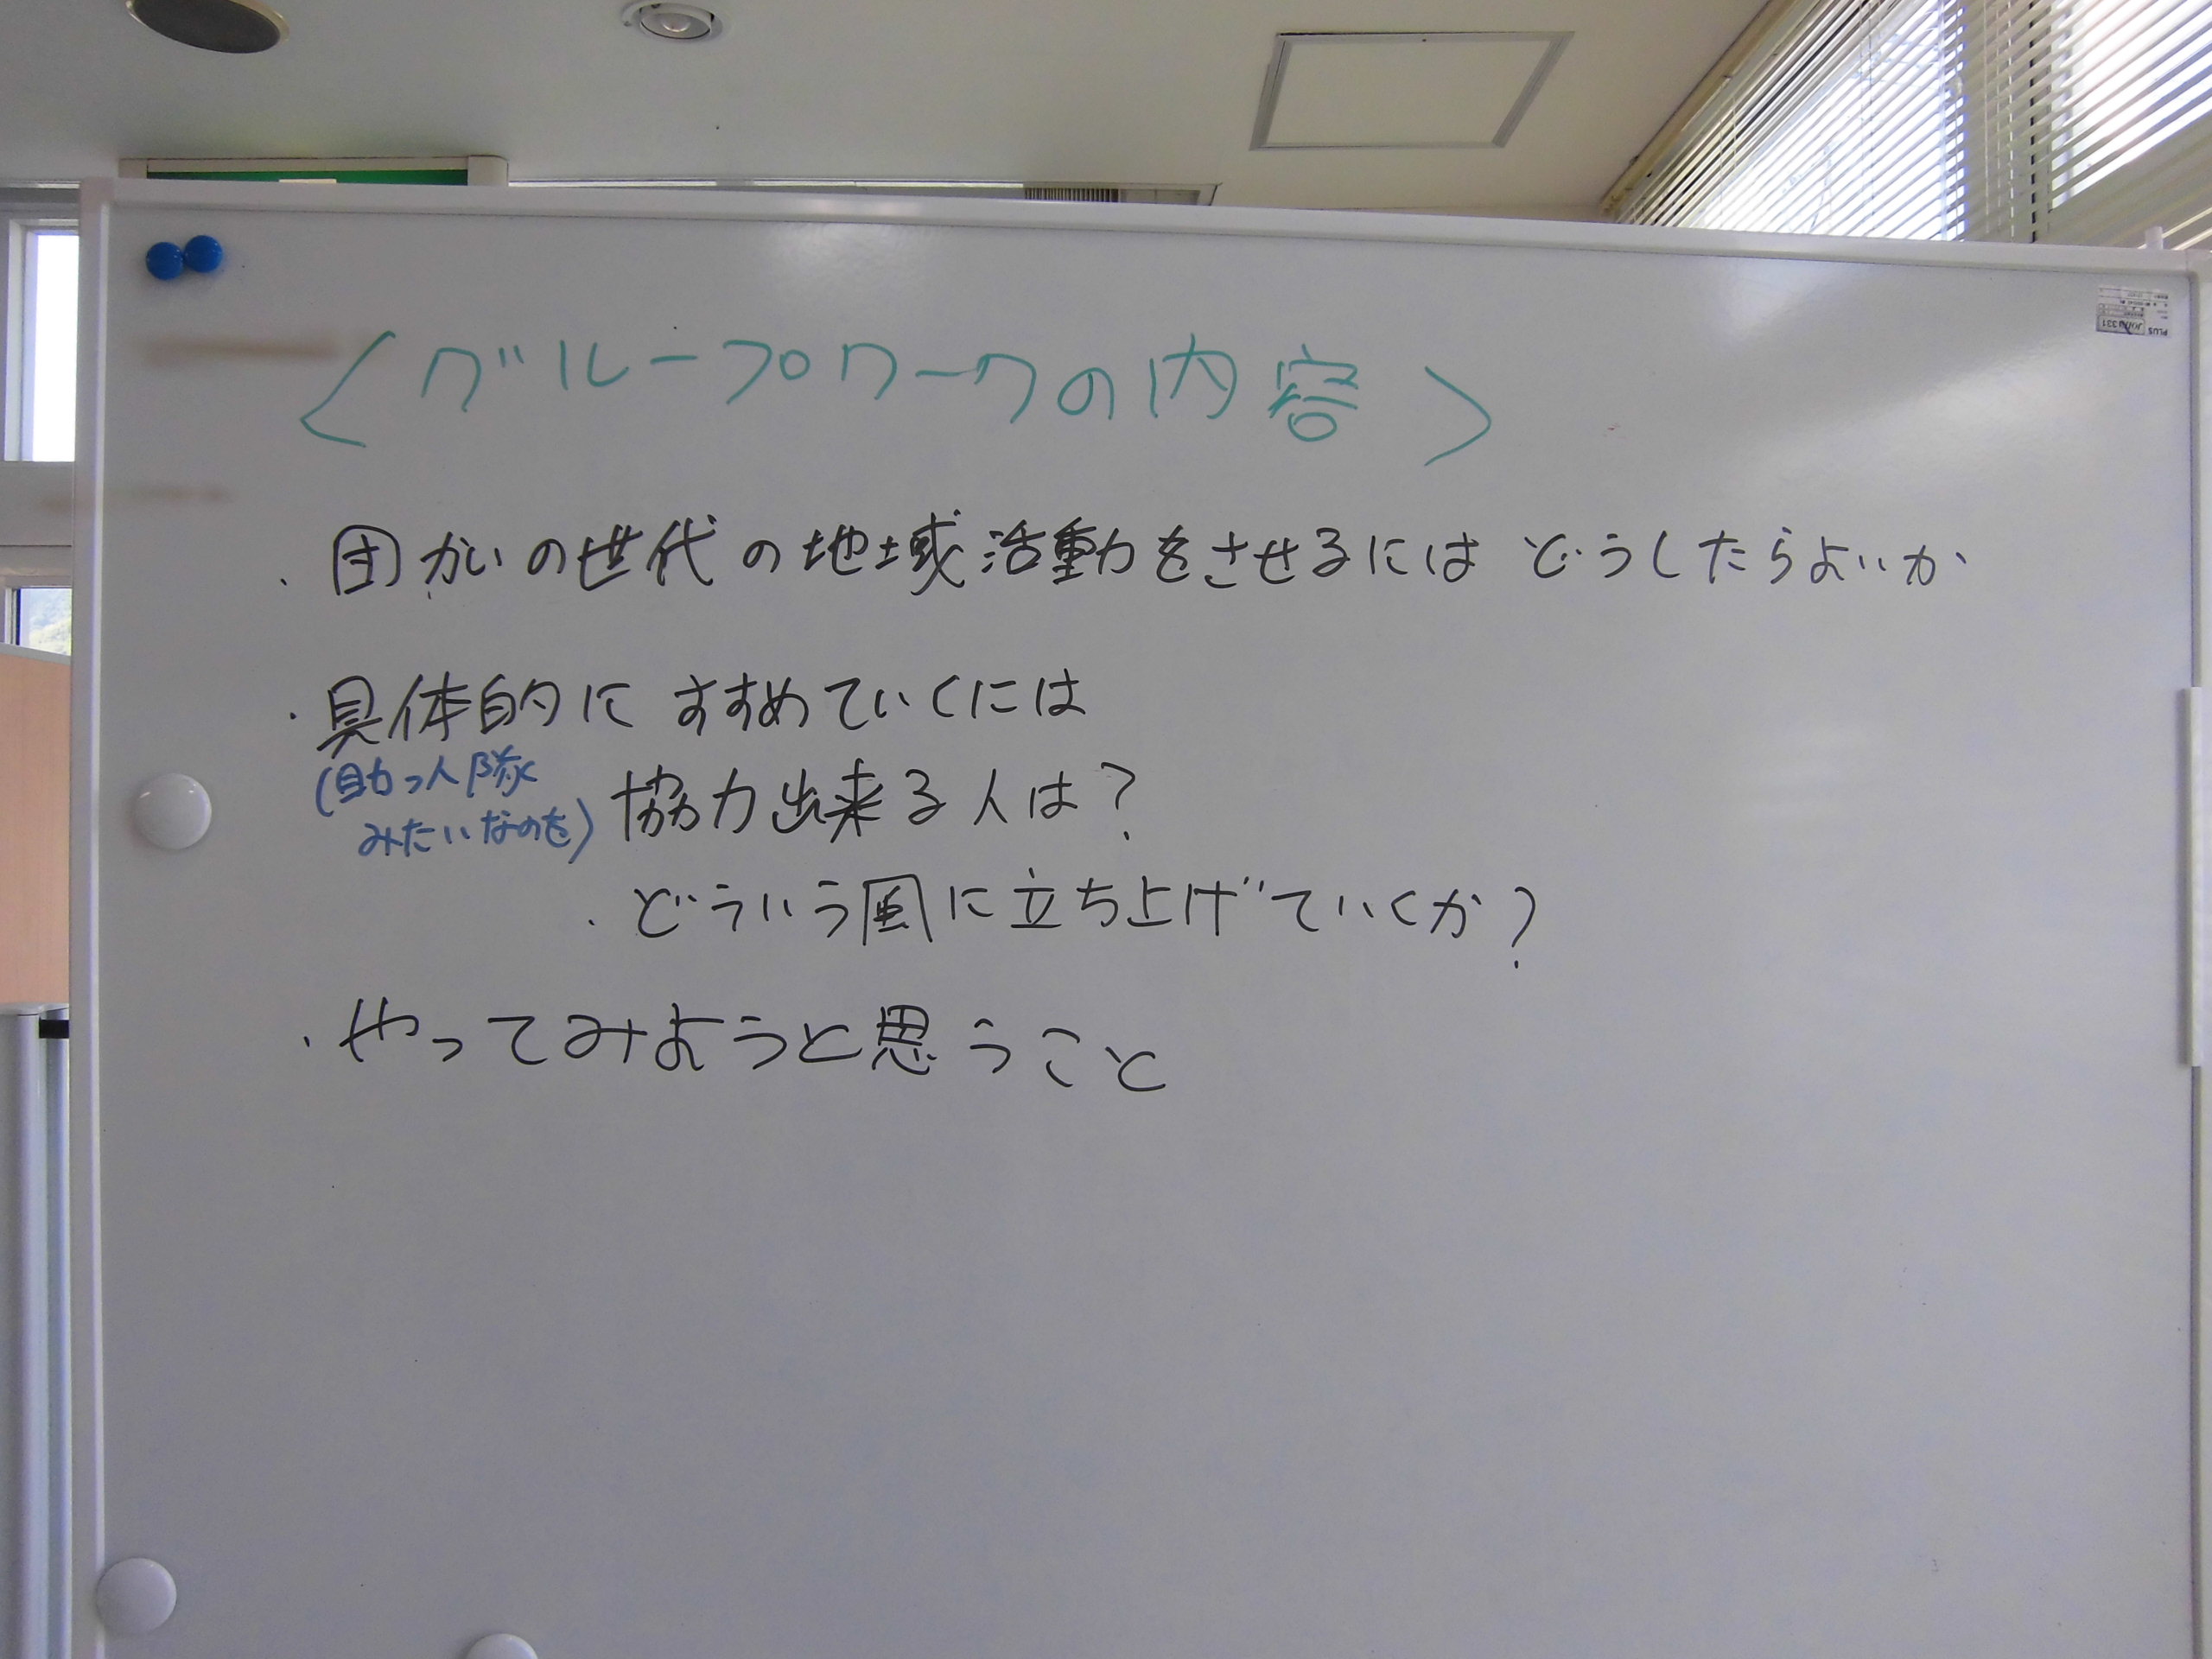 〈グループワークの内容〉
・団かいの世代の地域活動をさせるには どうしたらよいか
・具体的に すすめていくには
(助っ人隊
みたいなのを)
協力出来る人は?
・どういう風に立ち上げていくか?
・やってみようと思うこと
PLUS